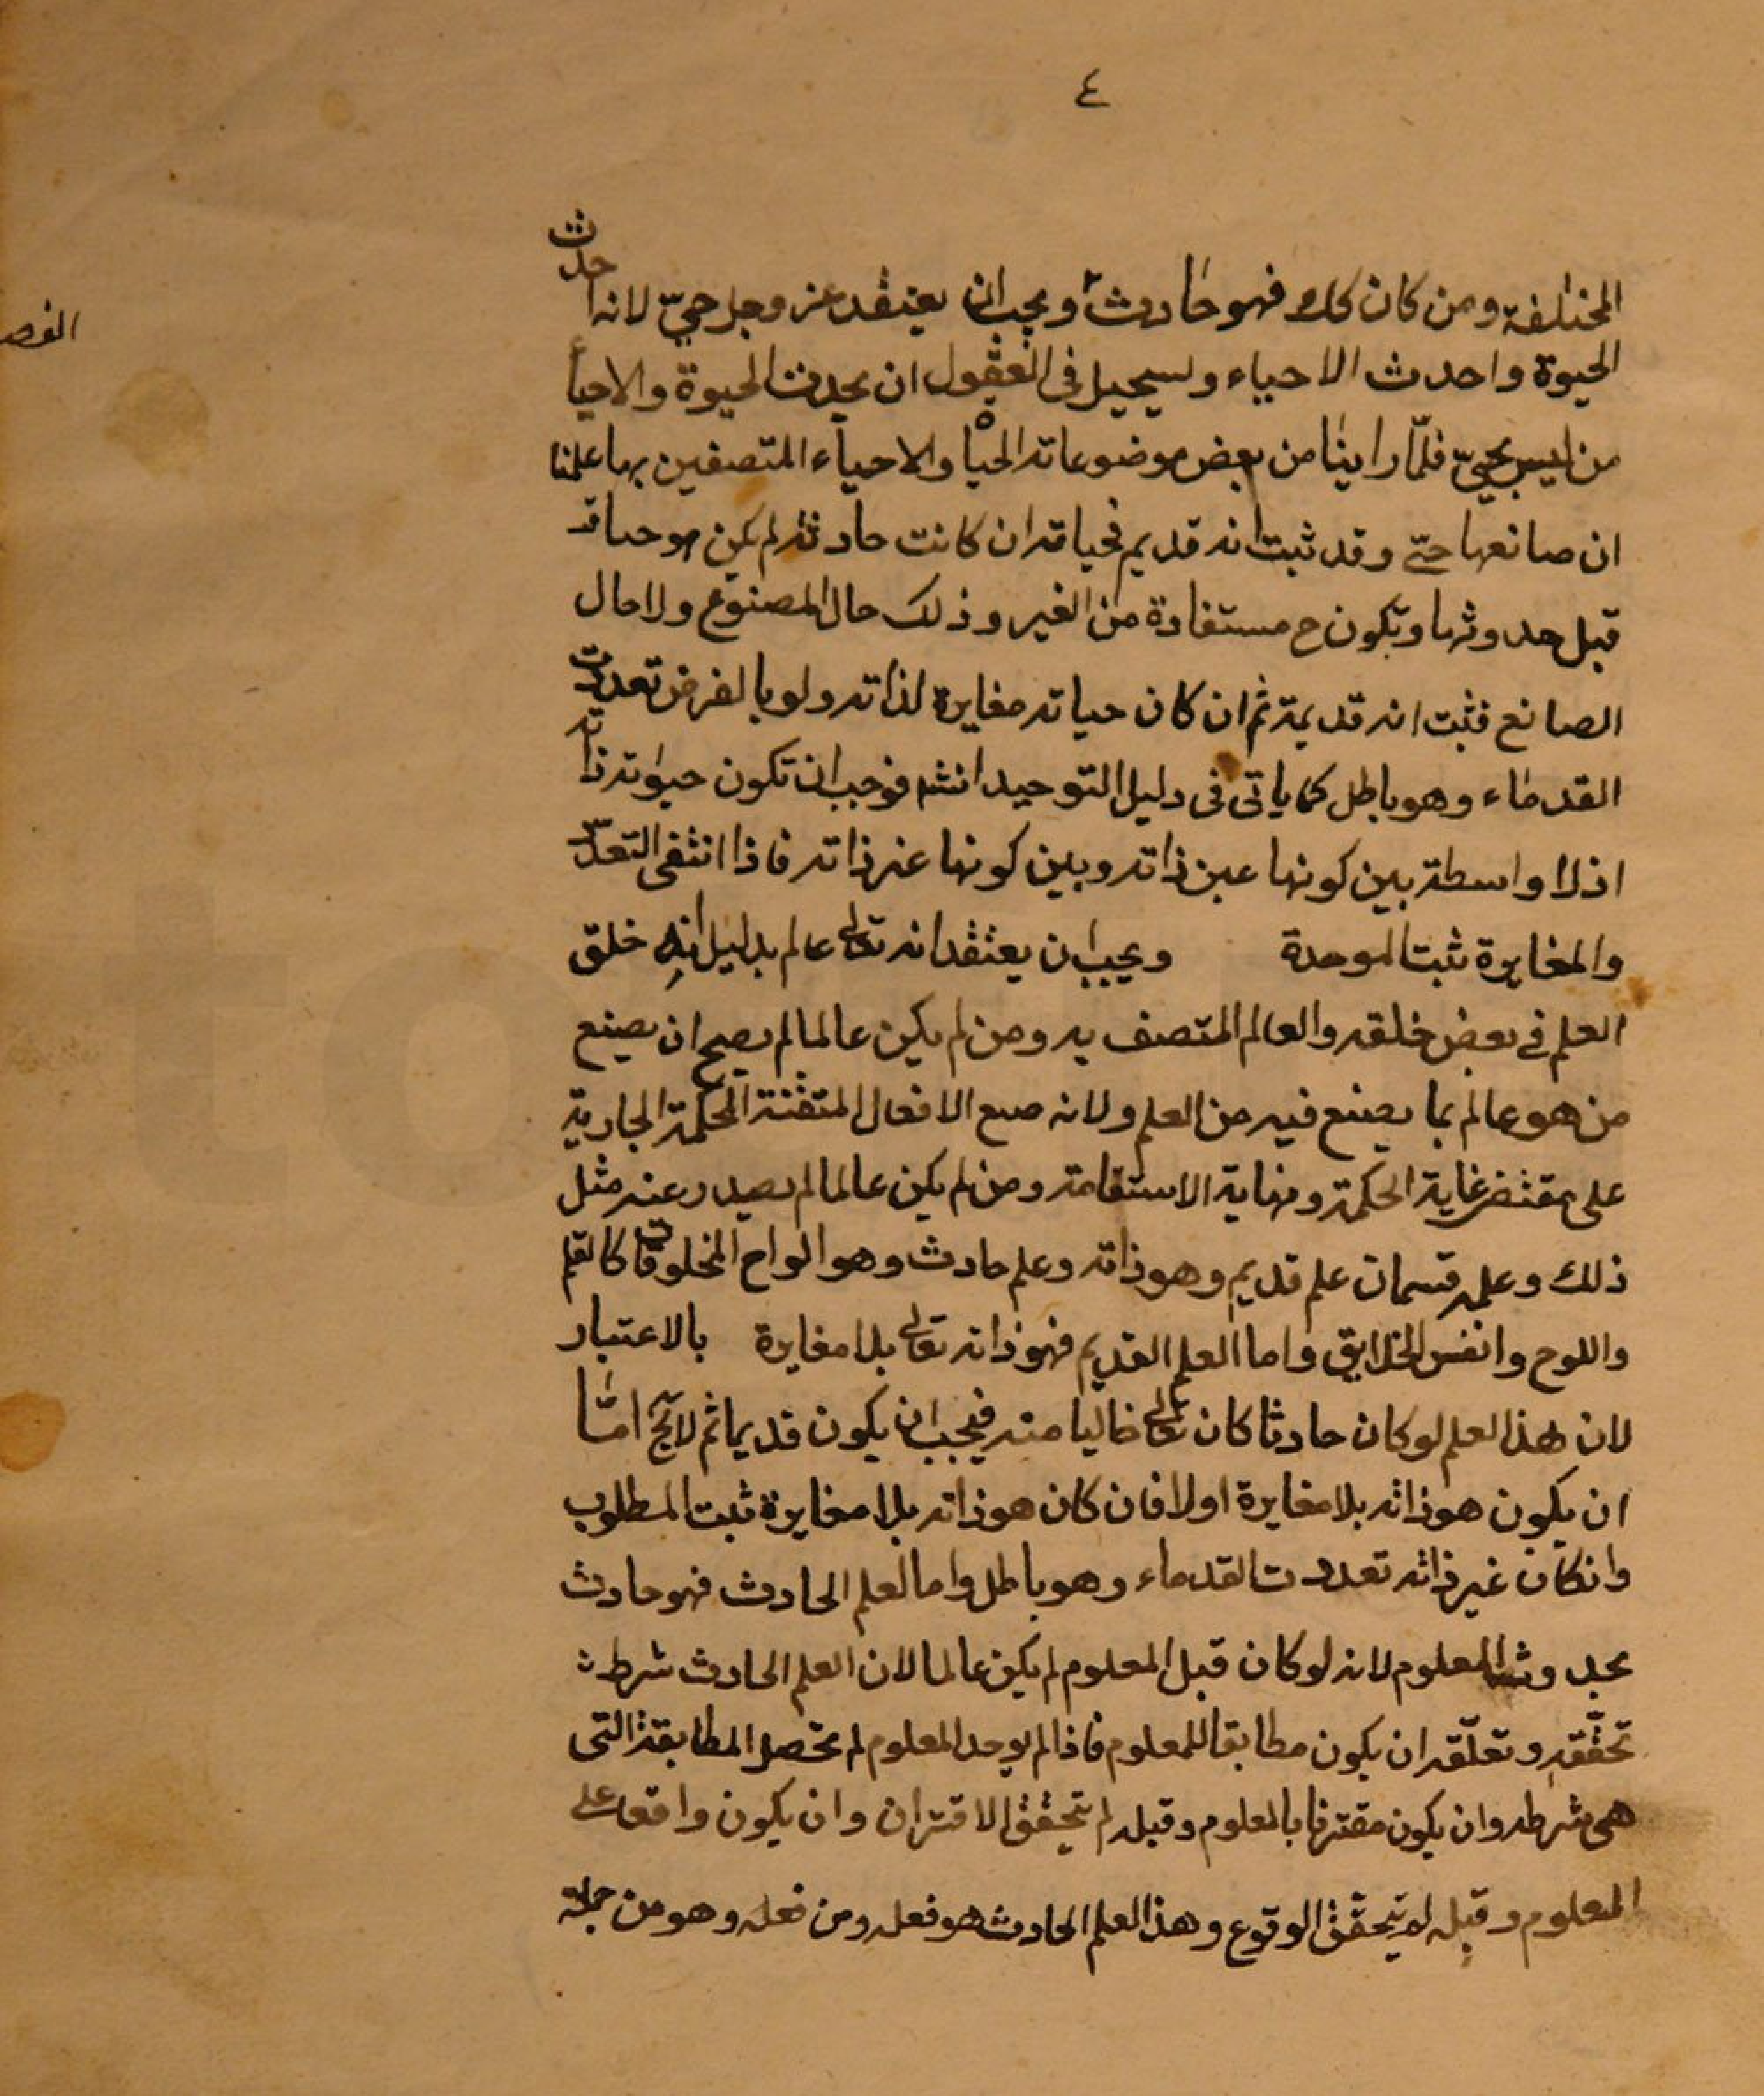 ٤
المختلفة ومن كان كك فهو حادث ويجب ان يعتقد عز وجل حيّ لانه احدث
الحيوة واحدث الاحياء ويستحيل فى العقول ان يحدث الحيوة والاحياء
من ليس بحيّ فلمّا راينا من بعض موضوعاته الحياة والاحياء المتصفين بها علمنا
ان صانعها حيّ وقد ثبت انه قديم فحياته ان كانت حادثة لم يكن هو حياته
قبل حدوثها وتكون ح مستفادة من الغير وذلك حال المصنوع ولا حال
الصانع فثبت انه قديمة ثم ان كان حياته مغايرة لذاته ولو بالفرض تعددت
القدماء وهو باطل كما ياتى فى دليل التوحيد انشه فوجب ان تكون حيوته ذاته
اذ لا واسطة بين كونها عين ذاته وبين كونها غير ذاته فاذا انتفى التعدّد
والمغايرة ثبت الوحدة ويجب ان يعتقد انه تعالى عالم بدليل انه خلق
العلم في بعض خلقه والعالم المتصف به ومن لم يكن عالما لم يصح ان يصنع
من هو عالم بما يصنع فيه من العلم ولانه صنع الافعال المتقنة المحكمة الجارية
على مقتضى غاية الحكمة ونهاية الاستقامة ومن لم يكن عالما لم يصدر عنه مثل
ذلك وعلمه قسمان علم قديم وهو ذاته وعلم حادث وهو الواح المخلوقات كالقلم
واللوح وانفس الخلايق واما العلم القديم فهو ذاته تعالى بلا مغايرة بالاعتبار
لان هذا العلم لو كان حادثا كان تعالى خاليا منه فيجب ان يكون قديما ثم لايخ امّا
ان يكون هو ذاته بلا مغايرة اولا فان كان هو ذاته بلا مغايرة ثبت المطلوب
وانكان غير ذاته تعددت القدماء وهو باطل واما العلم الحادث فهو حادث
بحدوث المعلوم لانه لو كان قبل المعلوم لم يكن عالما لان العلم الحادث شرط
تحقّقه وتعلّقه ان يكون مطابقا للمعلوم فاذا لم يوجد المعلوم لم تحصل المطابقة التى
هى شرطه وان يكون مقترنا بالمعلوم وقبله لم تتحقق الاقتران وان يكون واقعا على
المعلوم وقبله لم يتحقق الوقوع وهذا العلم الحادث هو فعله ومن فعله وهو من جملة